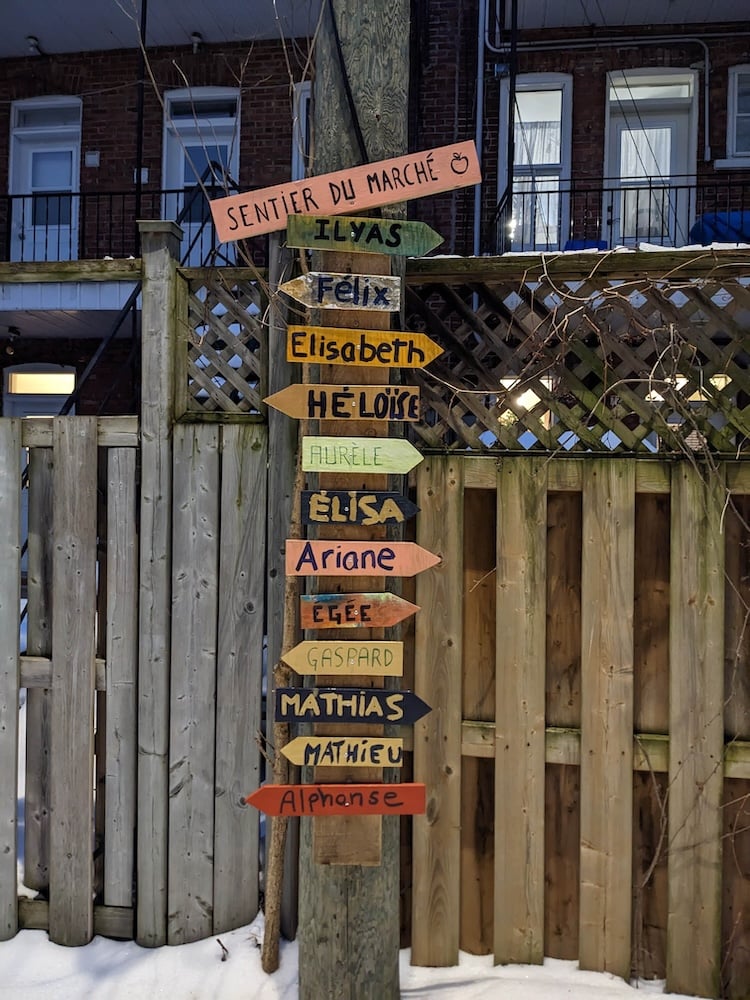 SENTIER DU MARCHÉ
ILYAS
Félix
Elisabeth
HÉLOÏSE
AURÈLE
ÉLISA
Ariane
EGÉE
GASPARD
MATHIAS
MATHIEU
Alphonse